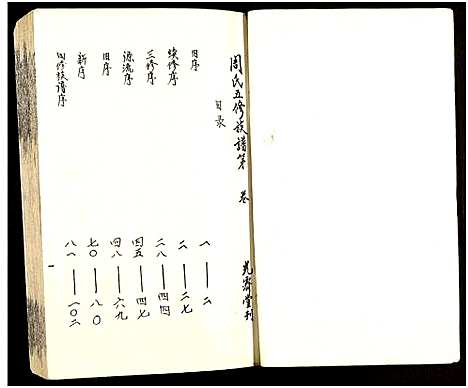 周氏五修族譜第 卷 光霽堂刊
目录
旧序 一——二
续修序 二——二七
三修序 二八——四四
源流序 四五——四七
旧序 四八——六九
新序 七〇——八〇
四修族谱序 八一——一〇二